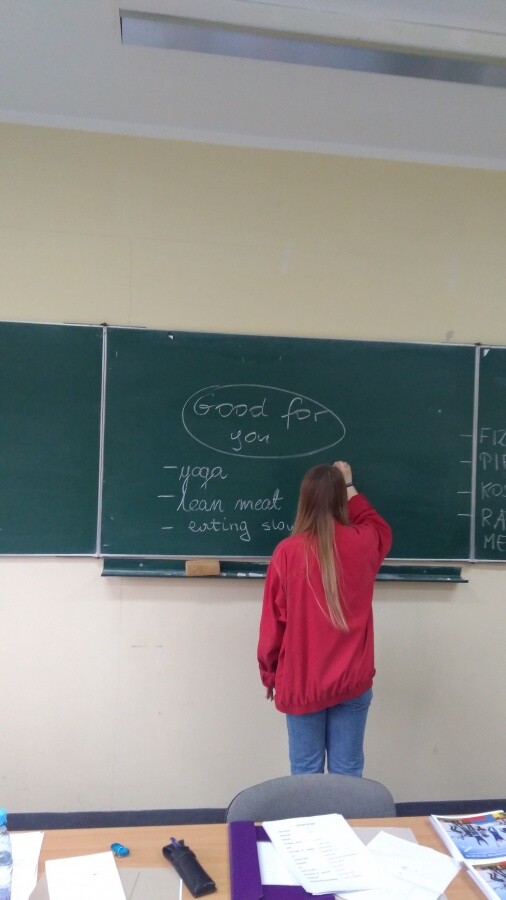 Good for
you
- yoga
- lean meat
- eating slow
- FIZ
- PIE
- KOS
- RA
ME